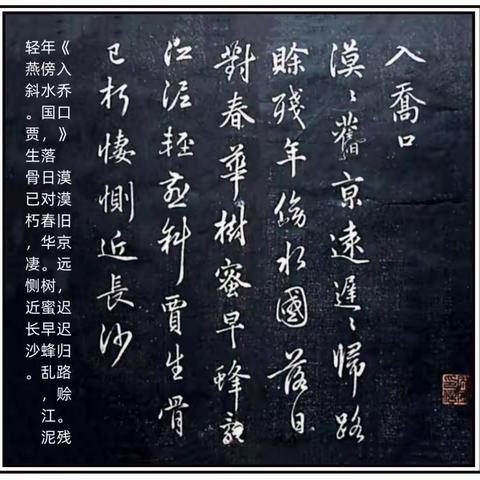 入喬口
漠〻舊京遠遲〻歸路
賒殘年傍水國落日
對春華樹蜜早蜂亂
江泥輕燕斜賈生骨
已朽悽惻近長沙
《入乔口》 漠漠旧京远，迟迟归路赊。残
年傍水国，落日对春华。树蜜早蜂乱，江泥
轻燕斜。贾生骨已朽，凄恻近长沙。